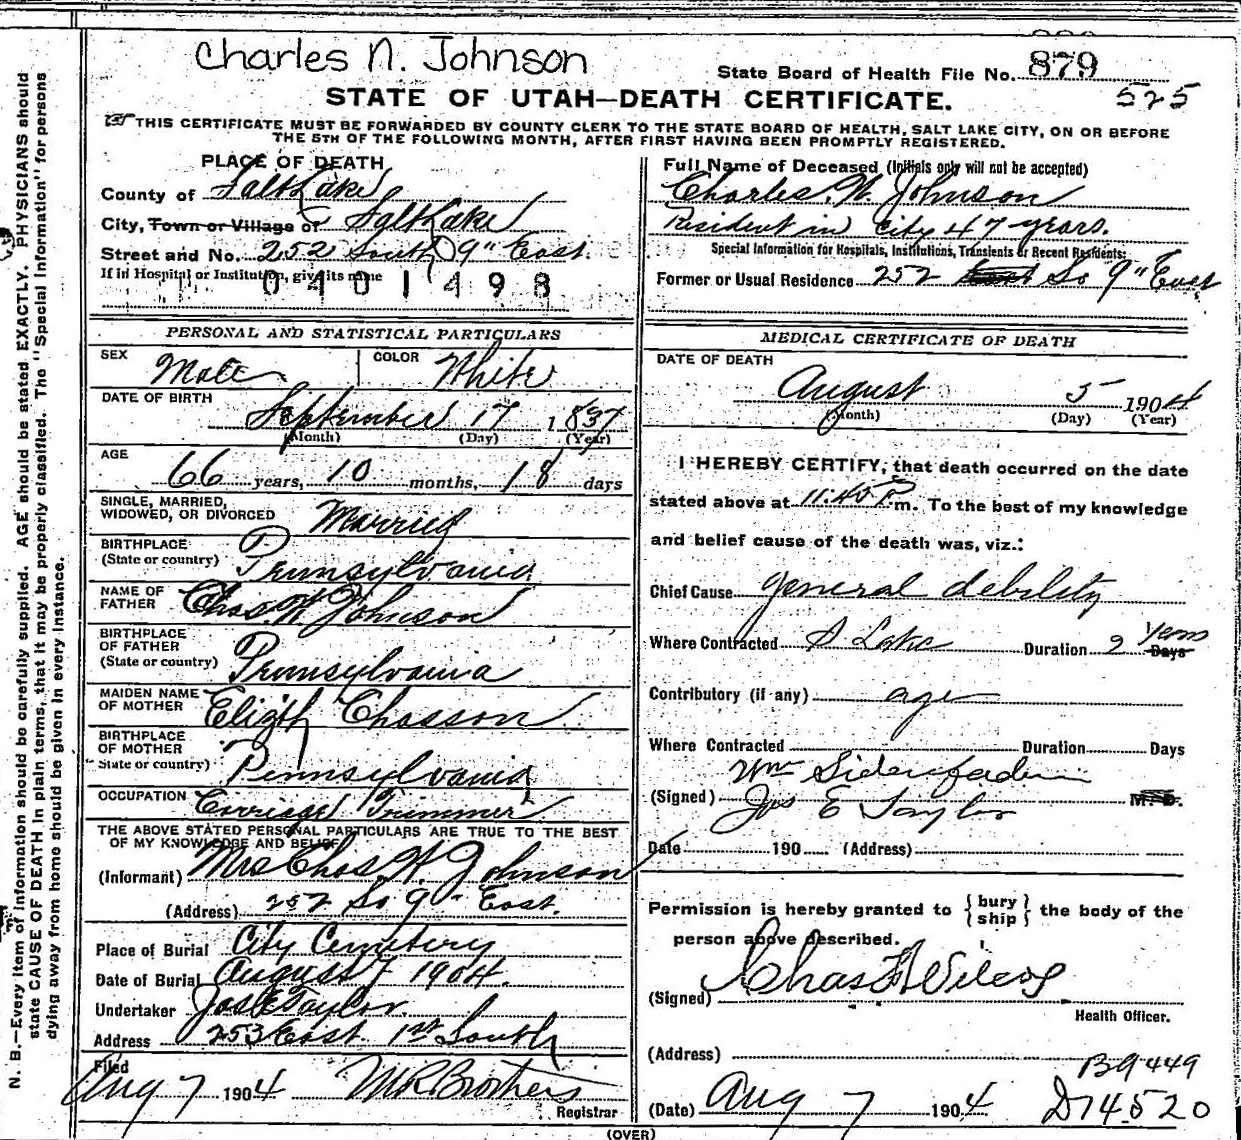 Charles N. Johnson
State Board of Health File No. 879
525
STATE OF UTAH—DEATH CERTIFICATE.
THIS CERTIFICATE MUST BE FORWARDED BY COUNTY CLERK TO THE STATE BOARD OF HEALTH, SALT LAKE CITY, ON OR BEFORE
THE 5TH OF THE FOLLOWING MONTH, AFTER FIRST HAVING BEEN PROMPTLY REGISTERED.
PLACE OF DEATH
County of Salt Lake
City, Town or Village of Salt Lake
Street and No. 252 South 9" East.
If in Hospital or Institution, give its name
0401498
PERSONAL AND STATISTICAL PARTICULARS
SEX Male COLOR White
DATE OF BIRTH
September 17 1837
(Month) (Day) (Year)
AGE
66 years, 10 months, 18 days
SINGLE, MARRIED,
WIDOWED, OR DIVORCED Married
BIRTHPLACE
(State or country) Pennsylvania
NAME OF
FATHER Chas. W Johnson
BIRTHPLACE
OF FATHER
(State or country) Pennsylvania
MAIDEN NAME
OF MOTHER Elizth Chasson
BIRTHPLACE
OF MOTHER
State or country) Pennsylvania
OCCUPATION Carriage Trimmer
THE ABOVE STATED PERSONAL PARTICULARS ARE TRUE TO THE BEST
OF MY KNOWLEDGE AND BELIEF
(Informant) Mrs Chas. N. Johnson
(Address) 252 So 9" East.
Place of Burial City Cemetery
Date of Burial August 7 1904.
Undertaker Jos E Taylor.
Address 253 East 1st South
Filed
Aug 7 1904
Registrar
Full Name of Deceased (Initials only will not be accepted)
Charles. N. Johnson
Resident in City 47 years.
Special Information for Hospitals, Institutions, Transients or Recent Residents:
Former or Usual Residence 252 East So 9" East
MEDICAL CERTIFICATE OF DEATH
DATE OF DEATH
August 5 1904
(Month) (Day) (Year)
I HEREBY CERTIFY, that death occurred on the date
stated above at 11.40 P. m. To the best of my knowledge
and belief cause of the death was, viz.:
Chief Cause general debility
Where Contracted S Lake Duration 2 Years Days
Contributory (if any) age
Where Contracted Duration Days
Wm
(Signed) Jos E Taylor M. D.
Date 190 (Address)
Permission is hereby granted to { bury ship } the body of the
person above described.
(Signed) Chas
Health Officer.
(Address)
B9449
(Date) Aug 7 1904
D74520
(OVER)
N. B.—Every item of information should be carefully supplied. AGE should be stated EXACTLY. PHYSICIANS should
state CAUSE OF DEATH in plain terms, that it may be properly classified. The "Special Information" for persons
dying away from home should be given in every instance.